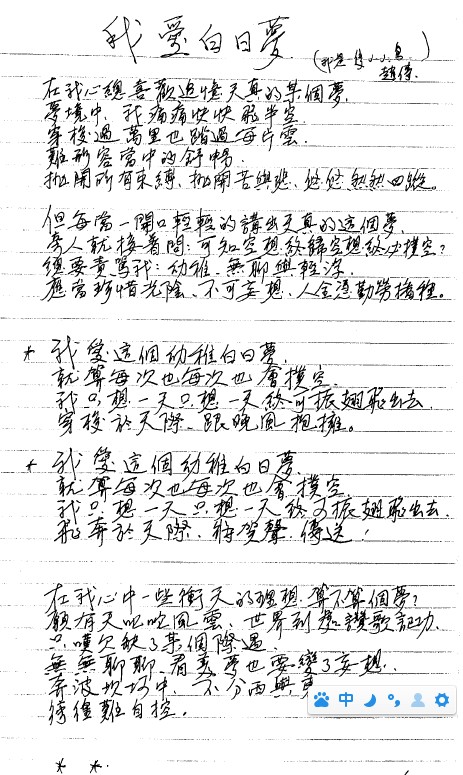 我愛白日夢
(我是一隻小小鳥
趙傳.
在我心總喜歡追憶天真的某個夢.
夢境中,我痛痛快快飛半空.
穿梭過萬里也踏過每片雲.
難形容當中的舒暢.
拋開所有束縛.拋開苦與悲.悠悠然然四蹤。
但每當一開口輕輕的講出天真的這個夢.
旁人就接著問:可知空想終歸空想終必撲空?
總要責罵我:幼稚.無聊與輕浮.
應當珍惜光陰.不可妄想.人全憑勤勞播種。
* 我愛這個幼稚白日夢.
就算每次也每次也會撲空.
我只想一天只想一天終可振翅飛出去.
穿梭於天際.跟晚風抱擁。
* 我愛這個幼稚白日夢.
就算每次也每次也會撲空.
我只想一天只想一天終可振翅飛出去.
飛奔於天際.將賀聲傳送!
在我心中一些衝天的理想.算不算個夢?
願有天叱咤風雲.世界到處讚歌記功.
只嘆欠缺了某個際遇.
無無聊聊.看美夢也要變了妄想..
奔波坎坷中.不分西與東
彷徨難自控。
* *.
中